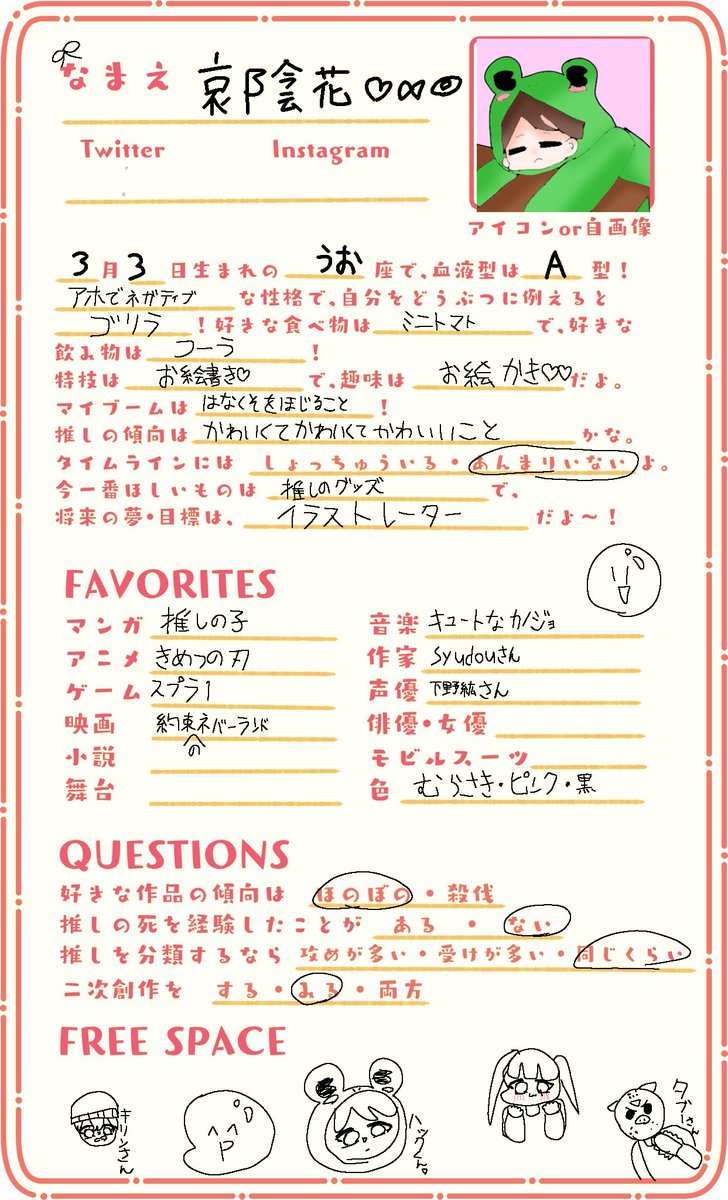 なまえ 哀陰花♡∞◎
Twitter Instagram
アイコンor自画像
3月3日生まれのうお座で、血液型はA型！
アホでネガティブな性格で、自分をどうぶつに例えると
ゴリラ！好きな食べ物はミニトマトで、好きな
飲み物はコーラ！
特技はお絵書き♡で、趣味はお絵かき♡♡だよ。
マイブームははなくそをほじること！
推しの傾向はかわいくてかわいくてかわいいことかな。
タイムラインにはしょっちゅういる・あんまりいないよ。
今一番ほしいものは推しのグッズで、
将来の夢・目標は、イラストレーターだよ〜！
FAVORITES
マンガ 推しの子
音楽 キュートなカノジョ
アニメ きめつの刃
作家 syudouさん
ゲーム スプラ1
声優 下野紘さん
映画 約束のネバーランド
俳優・女優
小説
モビルスーツ
舞台
色 むらさき・ピンク・黒
QUESTIONS
好きな作品の傾向は ほのぼの・殺伐
推しの死を経験したことが ある・ない
推しを分類するなら 攻めが多い・受けが多い・同じくらい
二次創作を する・みる・両方
FREE SPACE
キリンさん
ハックくん。
タブーさん